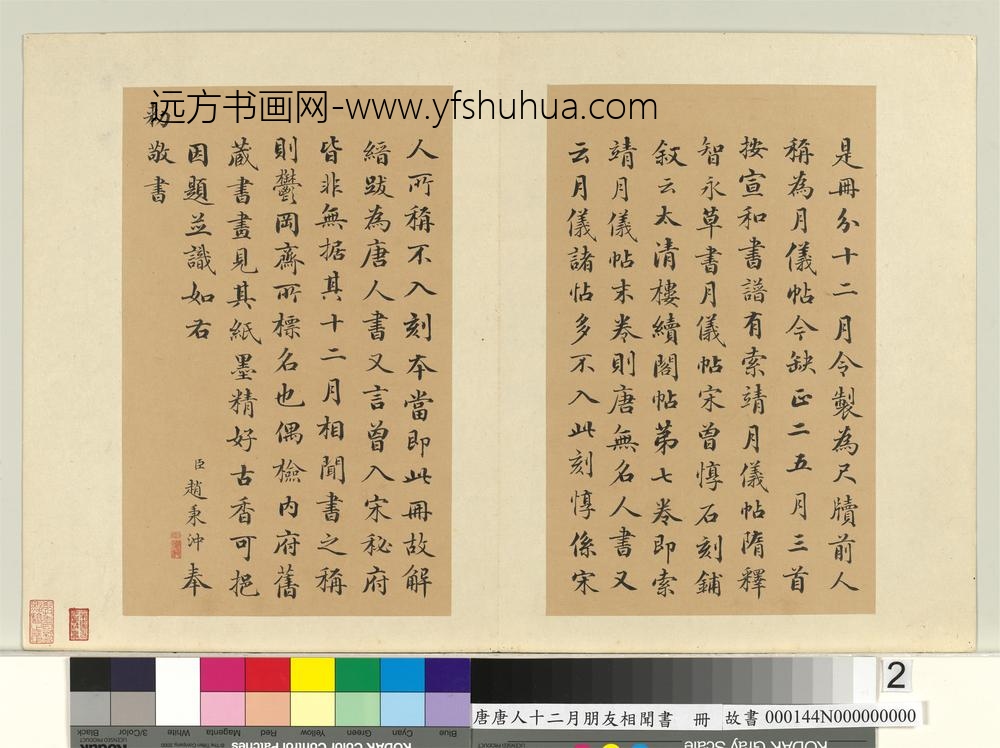 远方书画网-www.yfshuhua.com
是冊分十二月令製為尺牘前人
稱為月儀帖今缺正二五月三首
按宣和書譜有索靖月儀帖隋釋
智永草書月儀帖宋曾惇石刻鋪
敘云太清樓續閣帖第七卷即索
靖月儀帖末卷則唐無名人書又
云月儀諸帖多不入此刻惇係宋
人所稱不入刻本當即此冊故解
縉跋為唐人書又言曾入宋秘府
皆非無据其十二月相聞書之稱
則鬱岡齋所標名也偶檢內府舊
蔵書畫見其紙墨精好古香可挹
因題並識如右
臣趙秉沖奉
勅敬書
2
唐唐人十二月朋友相聞書 冊 故書 000144N000000000
Blue Cyan Green Yellow Red Magenta White 3/Color Black
KODAK Color Control Patches
KODAK Gray Scale